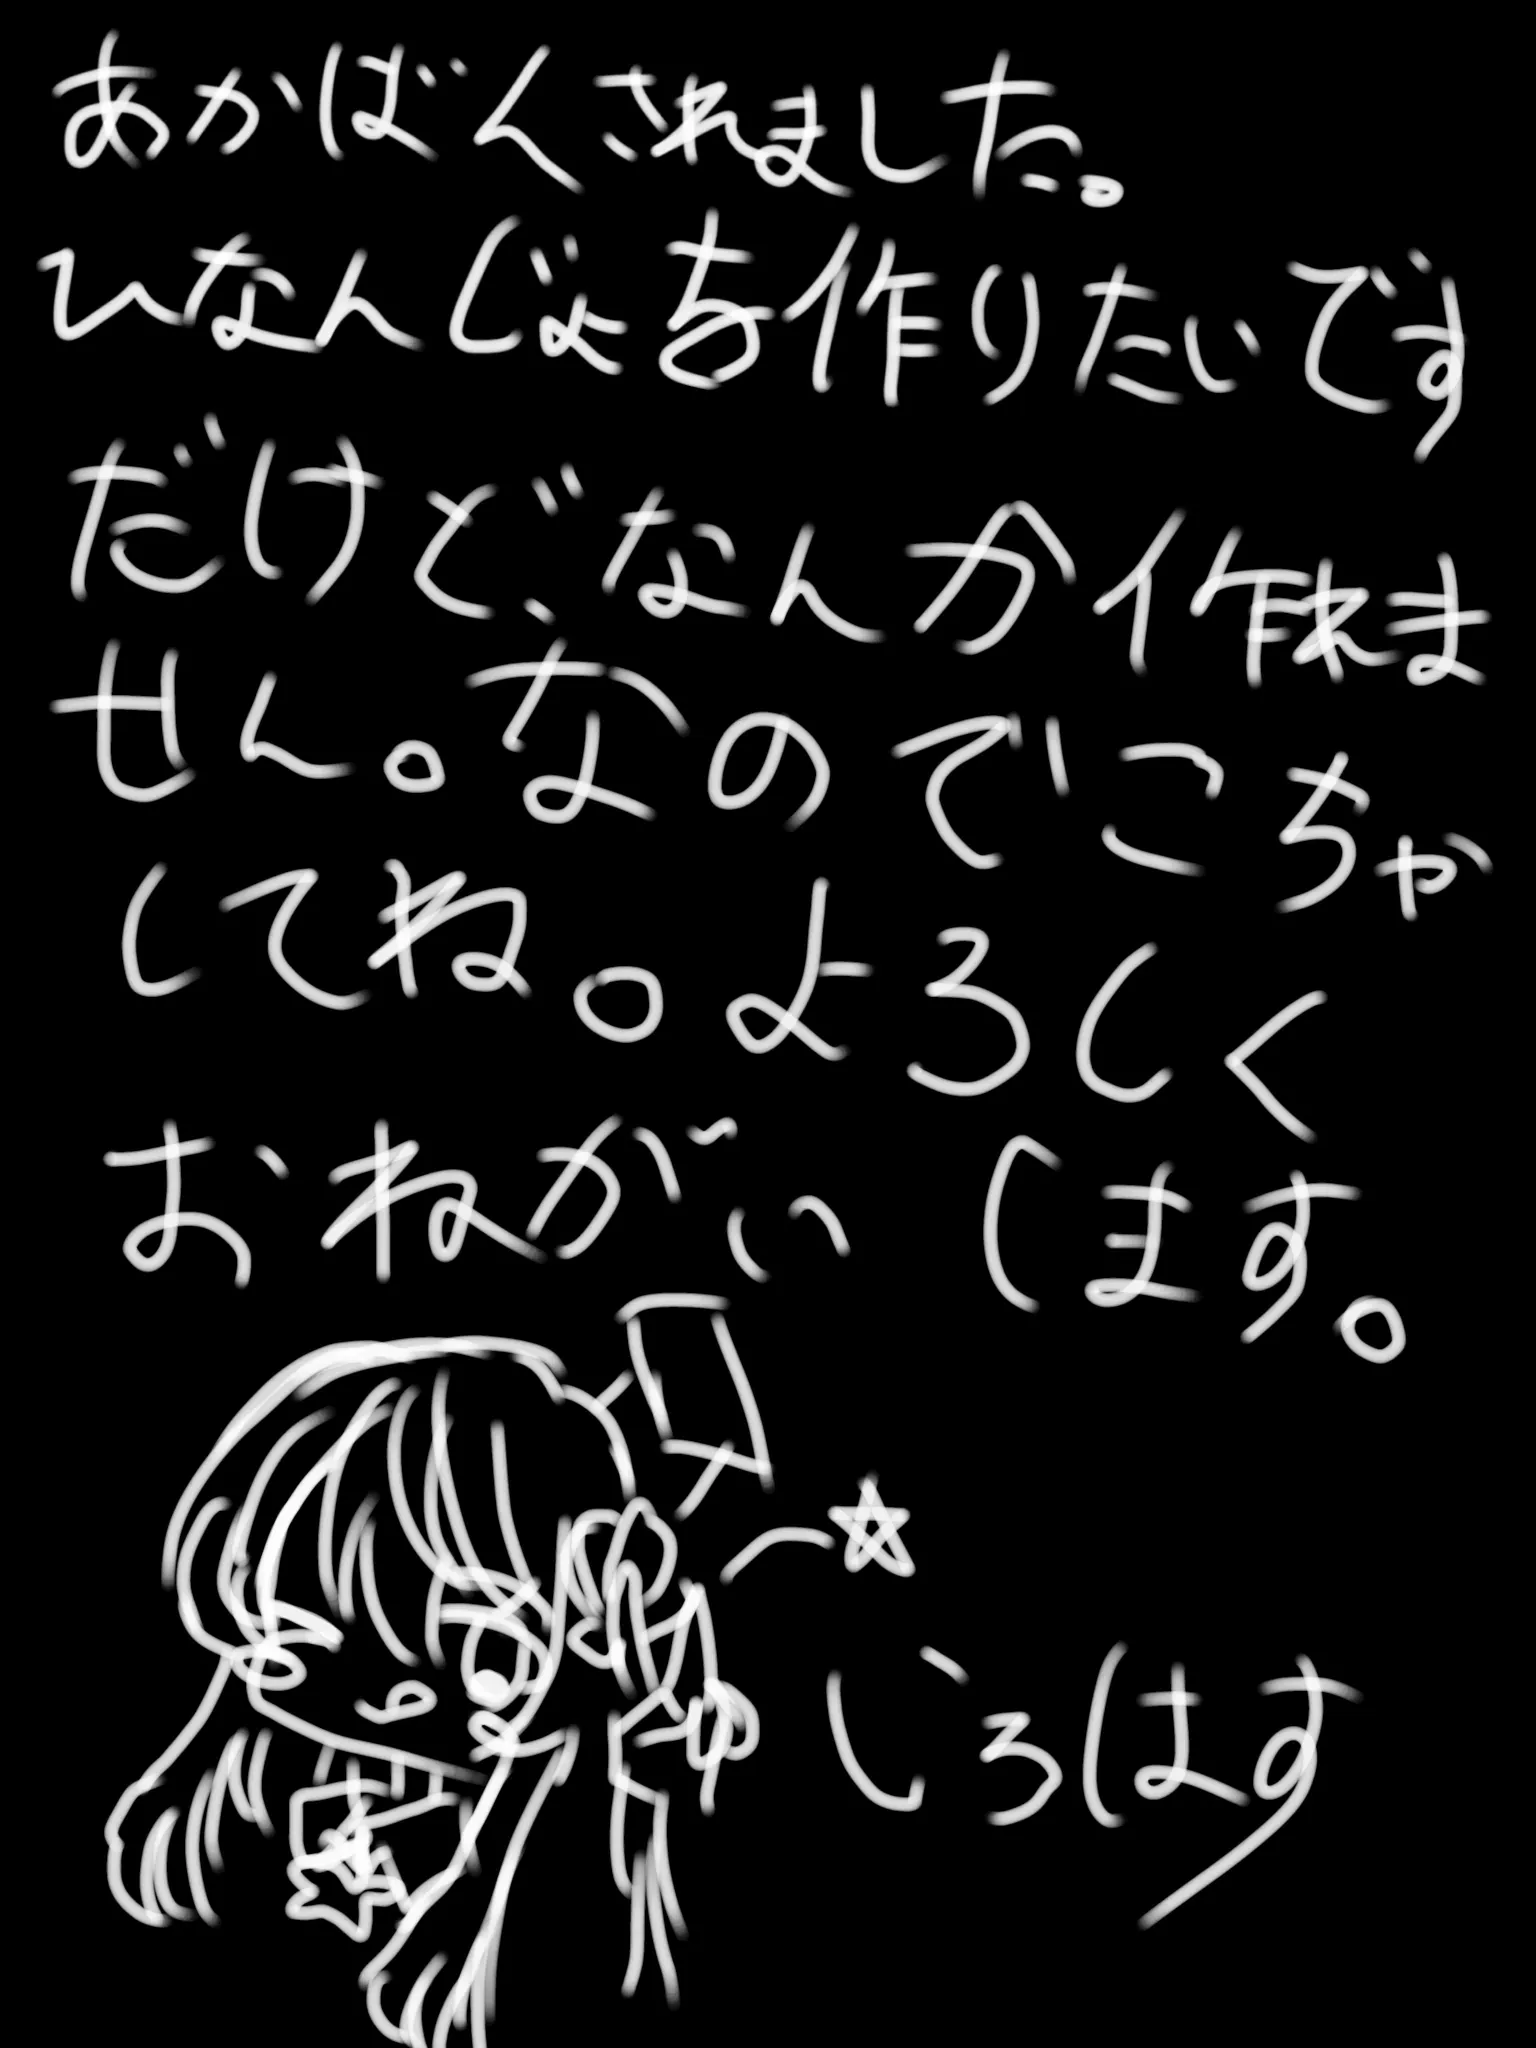 あかばんされました。
ひなんじょち作りたいです
だけど、なんか作れま
せん。なのでこちゃ
してね。よろしく
おねがいします。
いろはす